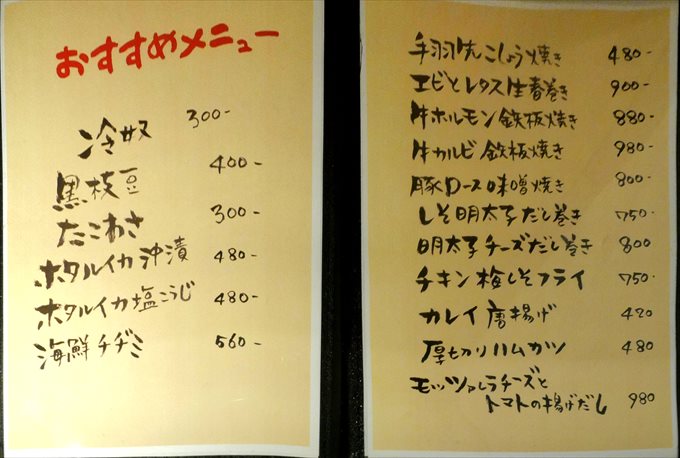 おすすめメニュー
冷奴 300-
黒枝豆 400-
たこわさ 300-
ホタルイカ沖漬 480-
ホタルイカ塩こうじ 480-
海鮮チヂミ 560-
手羽先こしょう焼き 480-
エビとレタス生春巻き 900-
牛ホルモン鉄板焼き 880-
牛カルビ鉄板焼き 980-
豚ロース味噌焼き 800-
しそ明太子だし巻き 750-
明太子チーズだし巻き 800
チキン梅しそフライ 750-
カレイ唐揚げ 420
厚切りハムカツ 480
モッツァレラチーズと
トマトの揚げだし 980